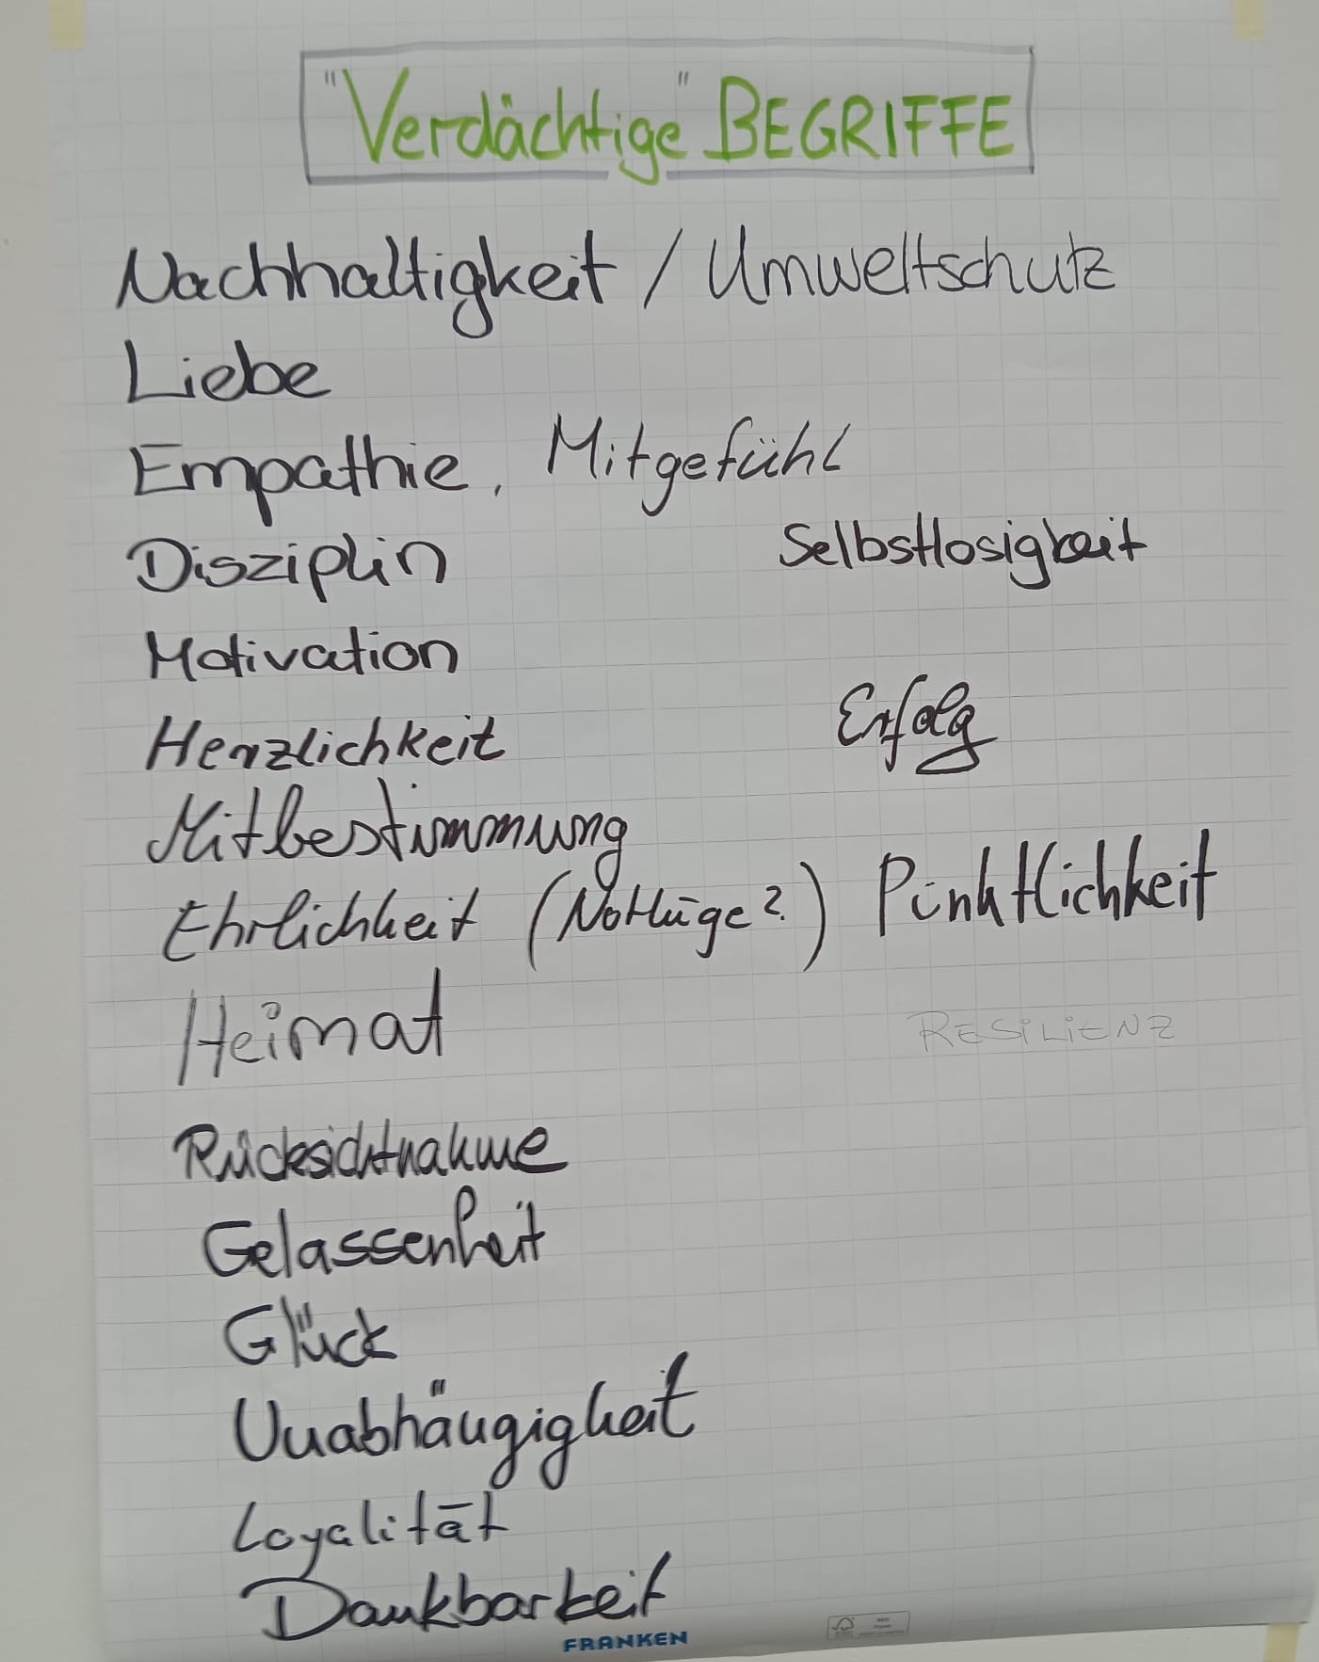 "Verdächtige" BEGRIFFE
Nachhaltigkeit / Umweltschutz
Liebe
Empathie, Mitgefühl
Disziplin
Selbstlosigkeit
Motivation
Herzlichkeit
Erfolg
Mitbestimmung
Ehrlichkeit (Notlüge?) Pünktlichkeit
Heimat
RESILIENZ
Rücksichtnahme
Gelassenheit
Glück
Unabhängigkeit
Loyalität
Dankbarkeit
FRANKEN